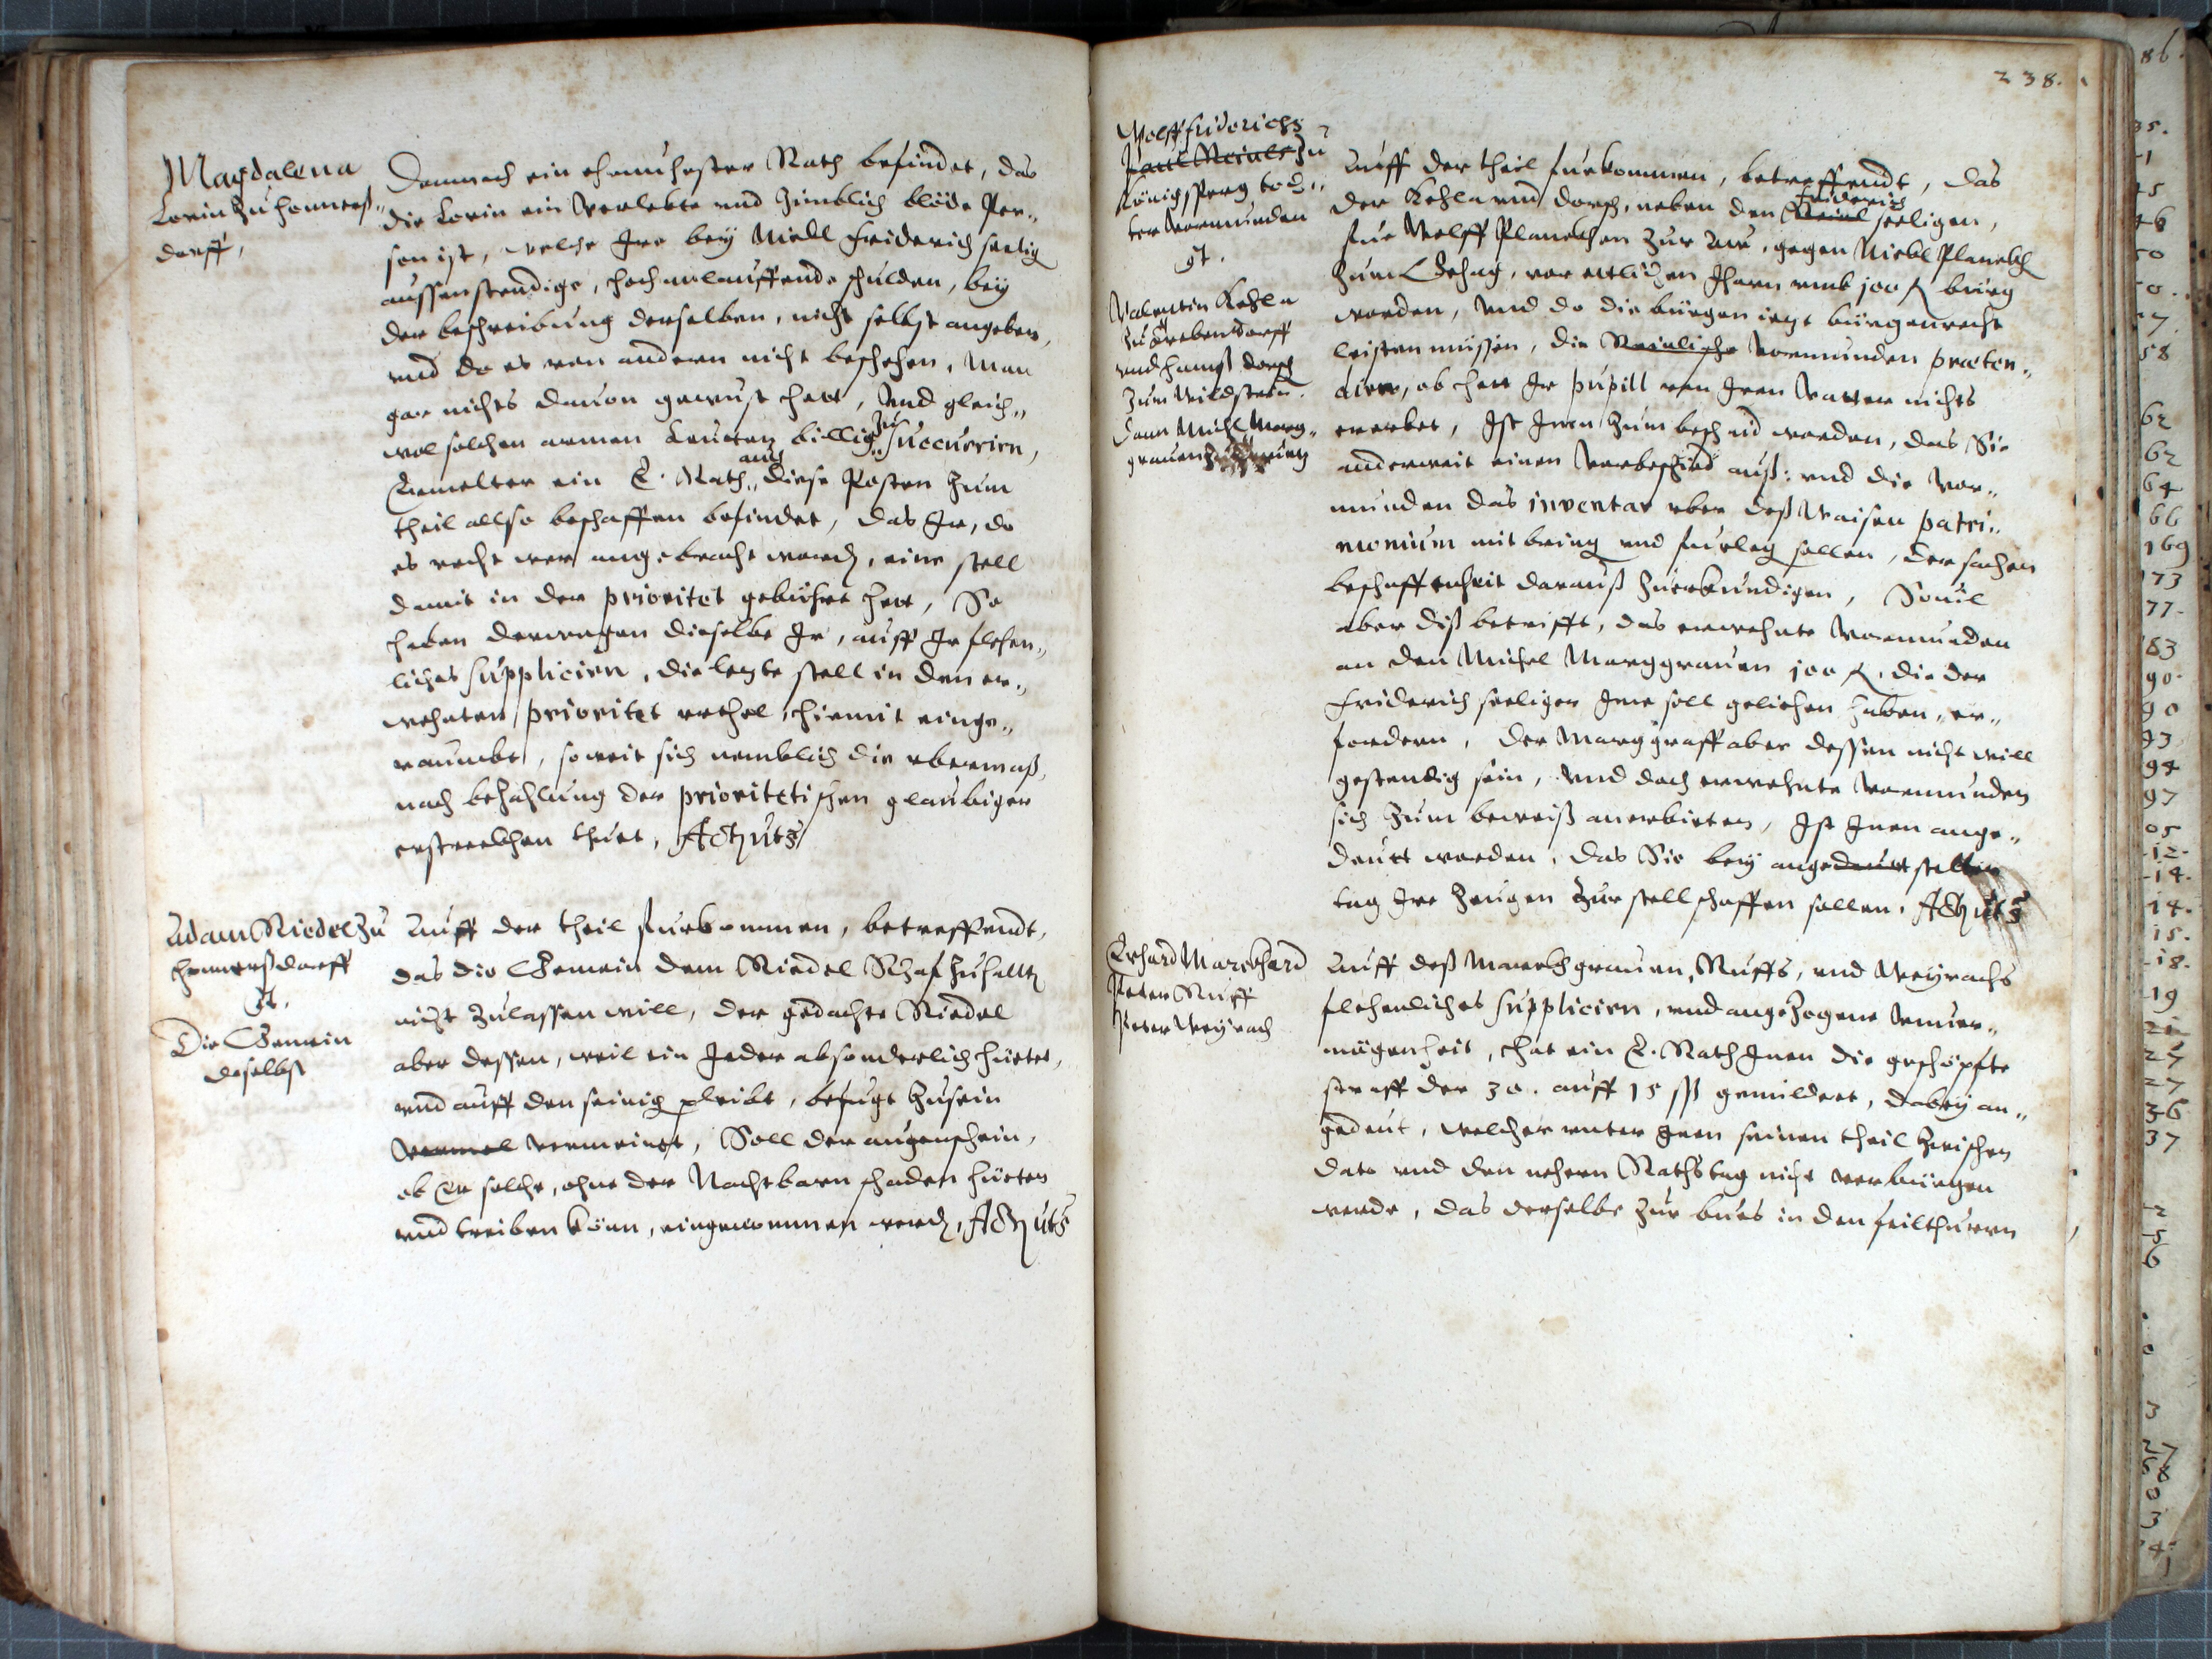 Magdalena
Lorin zu Honnerß„
dorff,
Demnach ein ehrnuhester Rath befindet, das
die Lorin ein verlebte vnd zimblich blöde Per„
son ist, welche Jre bey Niell Friderich seelig
aussenstendige, hochanlauffende schulden, bey
der beschreibung derselben, nicht selbst angeben,
vnd da es von andern nicht beschehen, Man
gar nichts dauon gewust hett, Vnd gleich„
wol solchen armen Leuten billig zu succurrirn,
Ermelter ein E. Rath auch diese Posten zum
theil allso beschaffen befindet, das Jr, do
es recht wer angebracht word, eine stell
damit in der prioritet gebührt hett, So
haben derwegen dieselbe Jr, auff Jr flehen„
liches supplicirn, die lezte stell in den er„
wehnten prioritet vrthel, hiemit einge„
raumbt, soweit sich nemblich die vbermaß,
nach bezahlung der prioritetischen glaubiger
erstreckhen thuet, Act. ut s.
Adam Riedel zu
Honnerßdorff
ct.
Die Gemein
daselbst
Auff der theil fürkommen, betreffendt,
das die Gemein dem Riedel Schaf zuhallten
nicht zulassen will, der gedachte Riedel
aber dessen, weil ein Jeder absonderlich hüetet,
vnd auff den seinig pleibt, befugt zusein
vermeinet, Soll der augenschein,
ob Er solche, ohne der Nachtbarn schaden hüeten
vnd treiben könn, eingenommen werd, Act. ut s.
238.
Wolff Friderichs
Paul Meinls zu
Königsperg toch„
ter Vormunden
ct.
Valentin Kehla
zu Trebendorff
vnd Hannß Dorsch
zum Wildstein.
Dann Michl Marg„
grauen
Auff der theil fürkommen, betreffendt, das
Friderich
der Kehla vnd Dorsch, neben den Meinl seeligen,
für Wolff Planckhen zur Aw, gegen Nickl Planckh
zum Gehag, vor ettlichen Jharn vmb 100 f. bürg
worden, Vnd do die bürgen iezt bürgenrecht
leisten müssen, die Meinlische Vormunden præten„
dirn, ob hett Jr pupill von Jren Vatter nichts
ererbet, Jst Jnen zum beschaid worden, das Sie
anderweit einen Vorbeschied auß: vnd die Vor„
munden das inventar vber deß Waisen patri„
monium mit bring vnd fürleg sollen, der sachen
beschaffenheit darauß zuerkundigen, Souil
aber diß betrifft, das erwehnte Vormunden
an den Michel Marggrauen 100 f. die der
Friderich seeliger Jme soll geliehen haben, er„
fordern, der Marggraff aber dessen nicht will
gestendig sein, Vnd doch erwehnte Vormunden
sich zum beweiß anerbieten, Jst Jnen ange„
deutt worden, das Sie bey angedeut stellten
tag Jre Zeugen zur stell schaffen sollen. Act. ut s.
Erhard Marckhard
Peter Ruff
Peter Weyrach
Auff deß Marckhgrauen, Ruffs, vnd Weyrachs
flehenliches supplicirn, vnd angezogene Vnuer„
mügenheit, hat ein E. Rath Jnen die geschöpfte
straff der 30. auff 15 ßß gemildert, dabey an„
gedeut, welcher vnter Jnen seinen theil zwischen
dato vnd den nehern Rathstag nicht verbürgen
werde, das derselbe zur bues in den feilthurrn